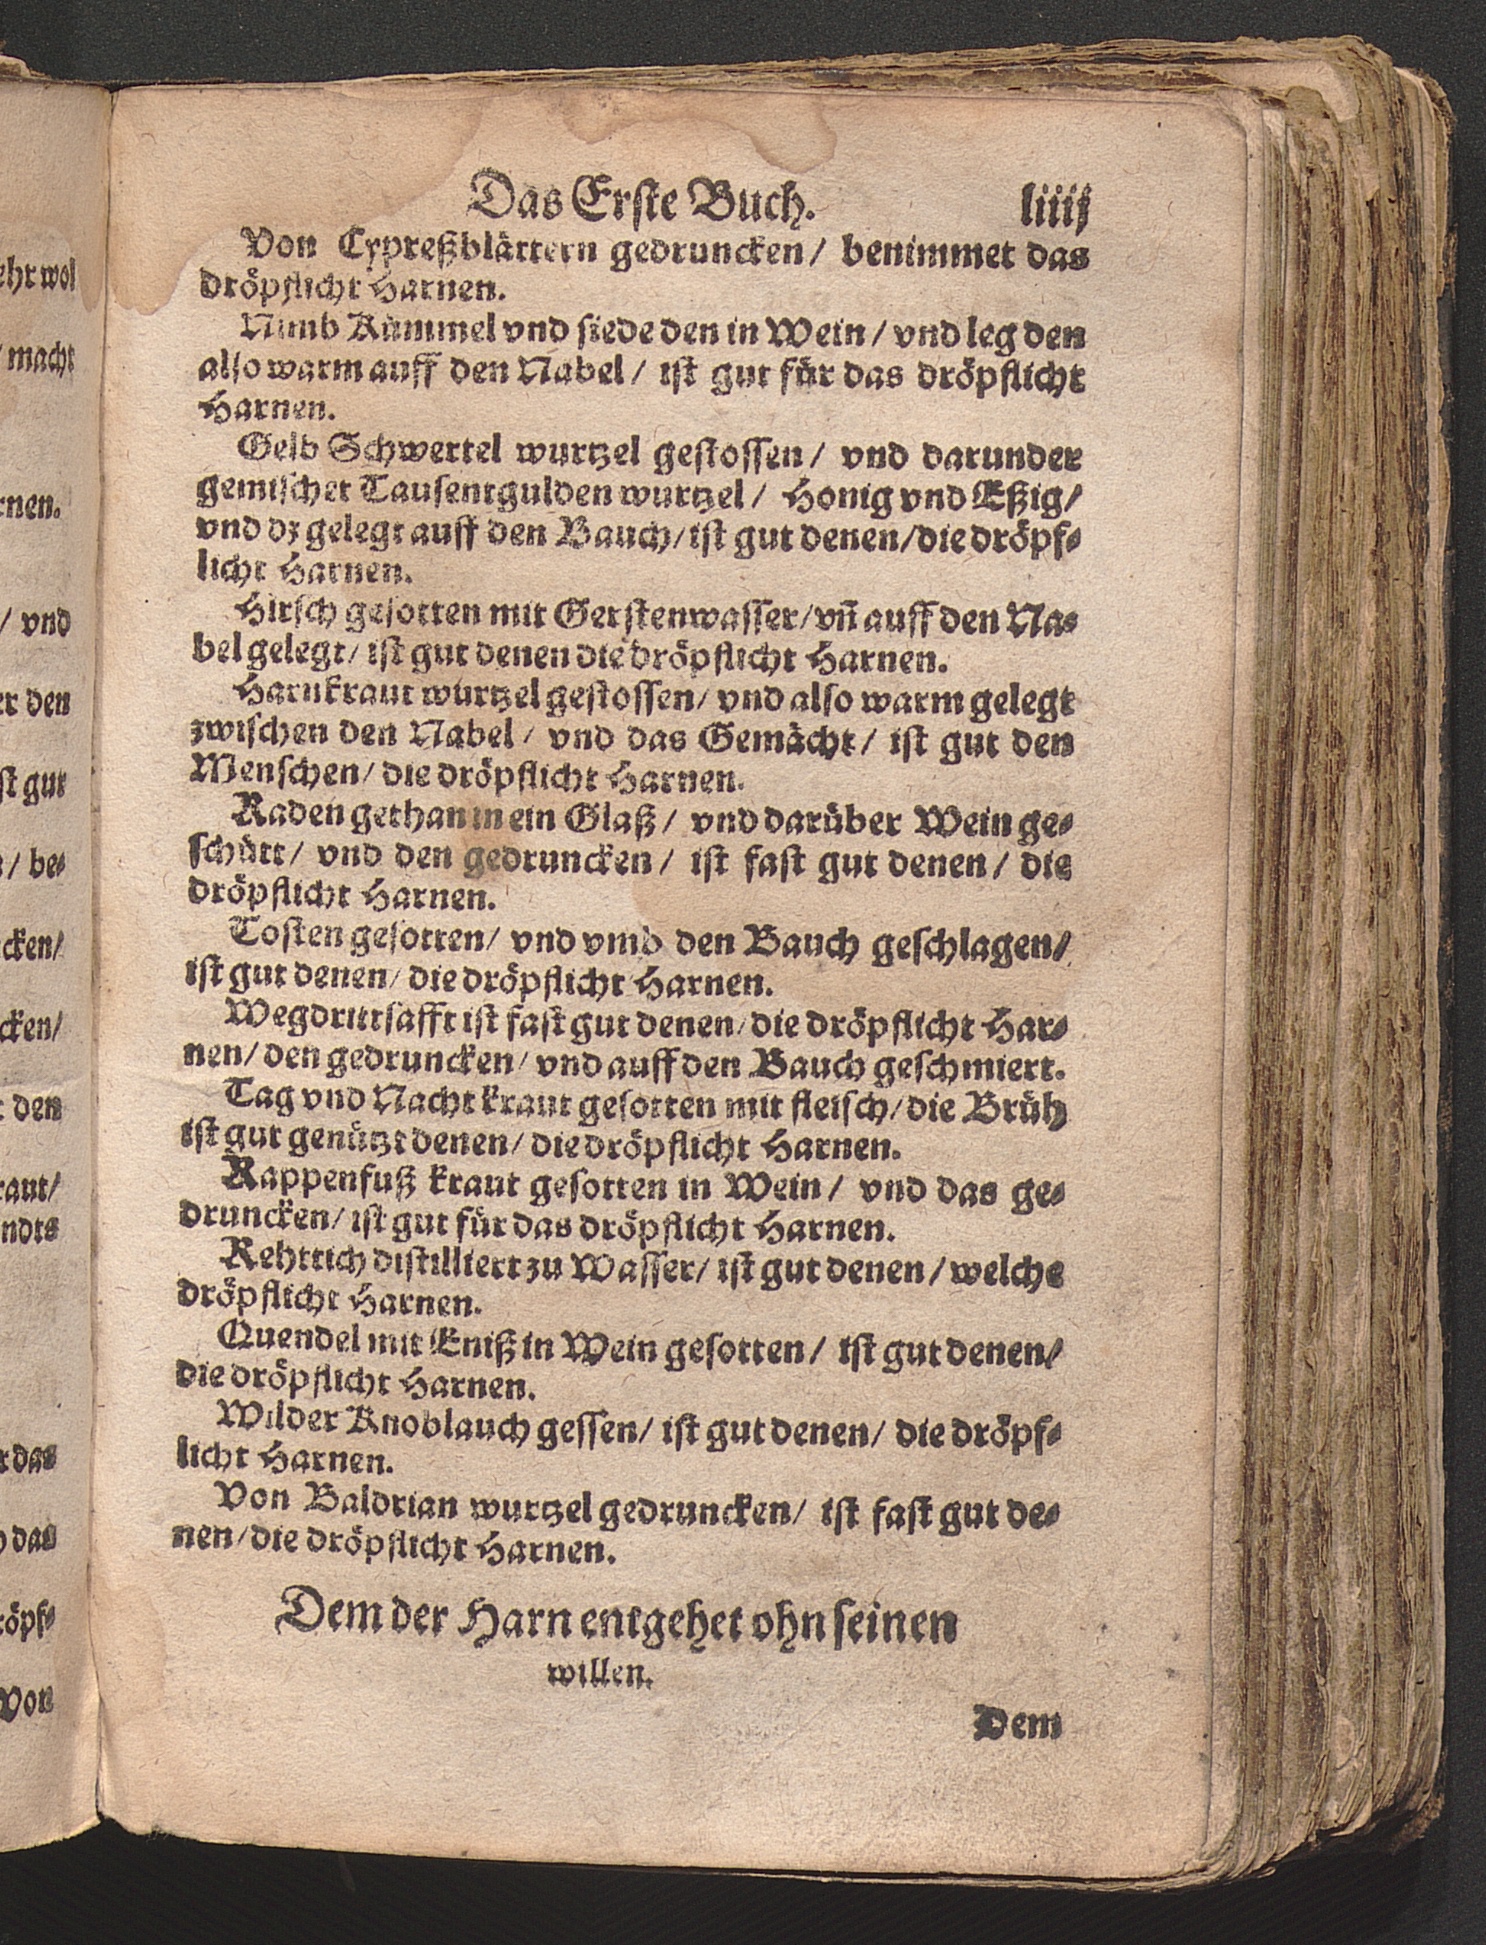 Das Erste Buch. liiij
Von Cypreßblättern gedruncken/ benimmet das
dröpflicht Harnen.
Nimb Kümmel vnd siede den in Wein/ vnd leg den
also warm auff den Nabel/ ist gut für das dröpflicht
Harnen.
Gelb Schwertel wurtzel gestossen/ vnd darunder
gemischet Tausentgulden wurtzel/ Honig vnd Eßig/
vnd dz gelegt auff den Bauch/ ist gut denen/ die dröpf⸗
licht Harnen.
Hirsch gesotten mit Gerstenwasser/ vñ auff den Na⸗
bel gelegt/ ist gut denen die dröpflicht Harnen.
Harnkraut wurtzel gestossen/ vnd also warm gelegt
zwischen den Nabel/ vnd das Gemächt/ ist gut den
Menschen/ die dröpflicht Harnen.
Raden gethan in ein Glaß/ vnd darüber Wein ge⸗
schütt/ vnd den gedruncken/ ist fast gut denen/ die
dröpflicht Harnen.
Tosten gesotten/ vnd vmb den Bauch geschlagen/
ist gut denen/ die dröpflicht Harnen.
Wegdrittsafft ist fast gut denen/ die dröpflicht Har⸗
nen/ den gedruncken/ vnd auff den Bauch geschmiert.
Tag vnd Nacht kraut gesotten mit fleisch/ die Brüh
ist gut genützt denen/ die dröpflicht Harnen.
Rappenfuß kraut gesotten in Wein/ vnd das ge⸗
druncken/ ist gut für das dröpflicht Harnen.
Rehttich distilliert zu Wasser/ ist gut denen/ welche
dröpflicht Harnen.
Quendel mit Eniß in Wein gesotten/ ist gut denen/
die dröpflicht Harnen.
Wilder Knoblauch gessen/ ist gut denen/ die dröpf⸗
licht Harnen.
Von Baldrian wurtzel gedruncken/ ist fast gut de⸗
nen/ die dröpflicht Harnen.
Dem der Harn entgehet ohn seinen
willen.
Dem